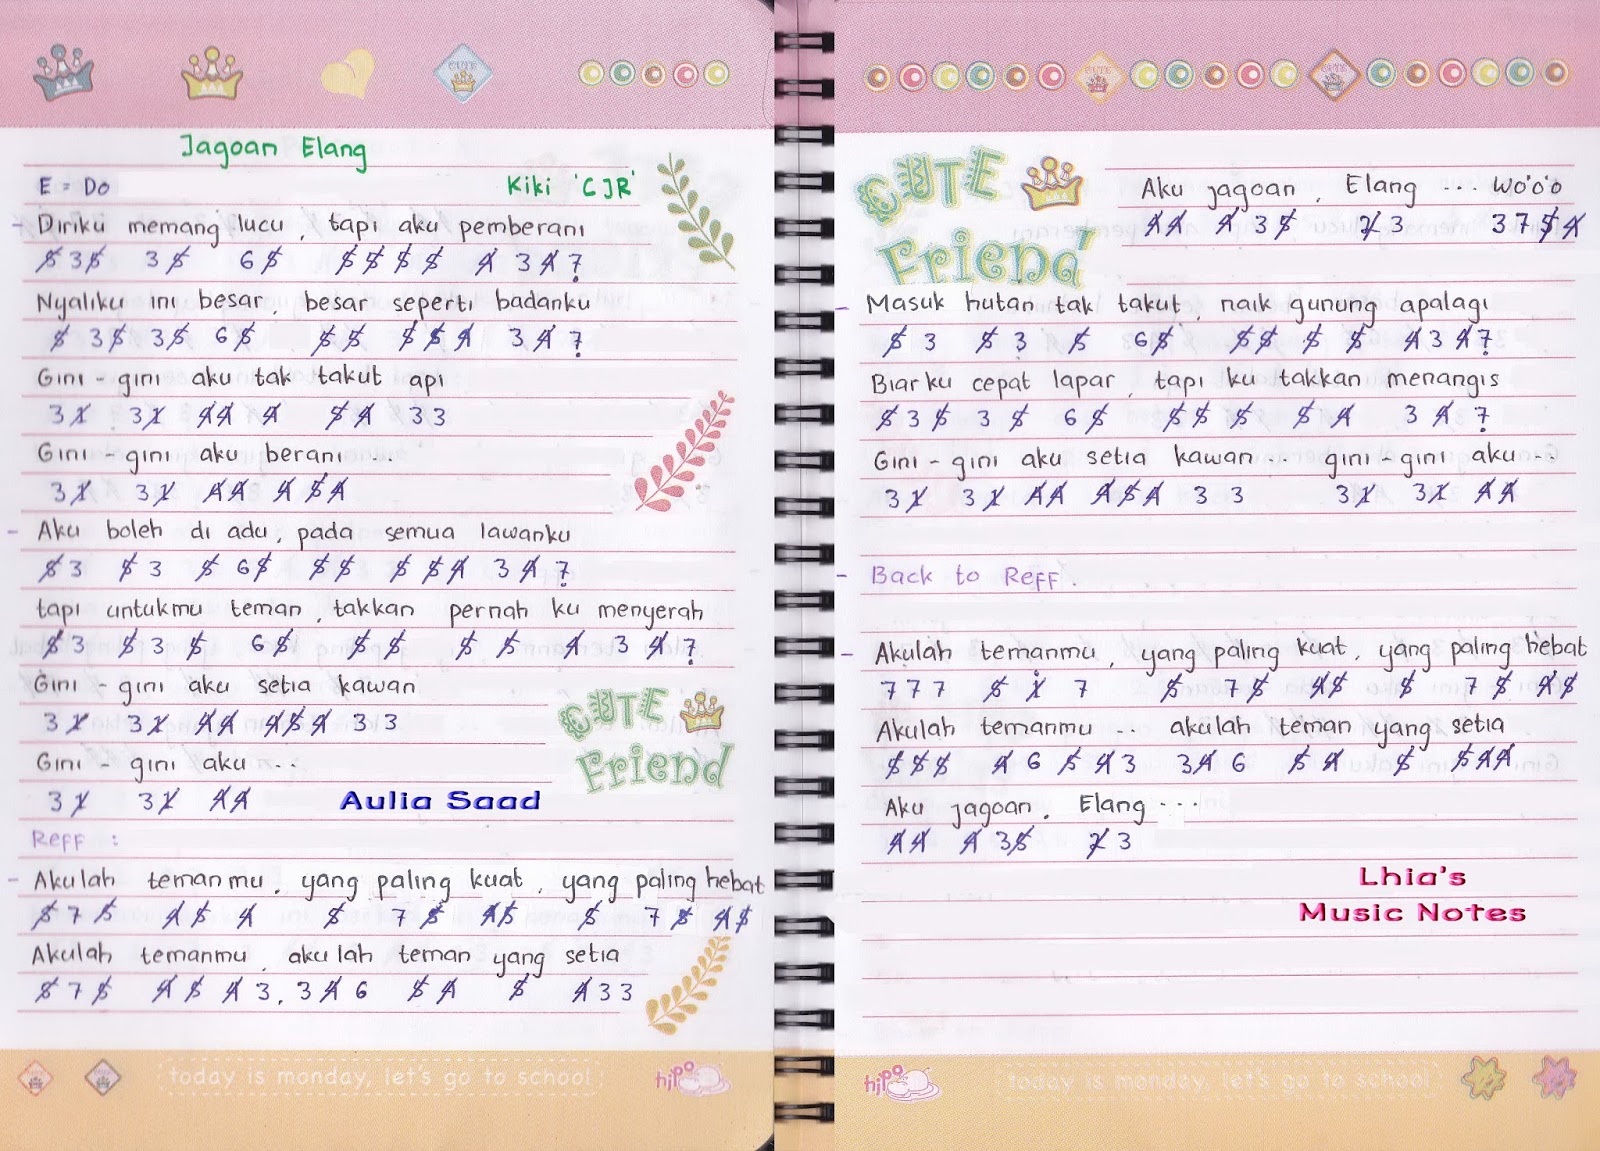 Jagoan Elang
E = Do
Kiki 'CJR'
- Diriku memang lucu, tapi aku pemberani
5̸ 3 5̸ 3 5̸ 6 5̸ 5̸ 5̸ 5̸ 5̸ 4̸ 3 4̸ 7̣
Nyaliku ini besar, besar seperti badanku
5̸ 3 5̸ 3 5̸ 6 5̸ 5̸ 5̸ 5̸ 5̸ 4̸ 3 4̸ 7̣
Gini - gini aku tak takut api
3 1̸ 3 1̸ 4̸ 4̸ 4̸ 5̸ 4̸ 3 3
Gini - gini aku berani ...
3 1̸ 3 1̸ 4̸ 4̸ 4̸ 5̸ 4̸
- Aku boleh di adu, pada semua lawanku
5̸ 3 5̸ 3 5̸ 6 5̸ 5̸ 5̸ 5̸ 5̸ 4̸ 3 4̸ 7̣
tapi untukmu teman, takkan pernah ku menyerah
5̸ 3 5̸ 3 5̸ 6 5̸ 5̸ 5̸ 5̸ 5̸ 4̸ 3 4̸ 7̣
Gini - gini aku setia kawan
3 1̸ 3 1̸ 4̸ 4̸ 4̸ 5̸ 4̸ 3 3
Gini - gini aku ..
3 1̸ 3 1̸ 4̸ 4̸
CUTE
Friend
Aulia Saad
Reff :
- Akulah temanmu, yang paling kuat, yang paling hebat
5̸ 7 5̸ 4̸ 5̸ 4̸ 5̸ 7 5̸ 4̸ 5̸ 5̸ 7 5̸ 4̸ 5̸
Akulah temanmu, aku lah teman yang setia
5̸ 7 5̸ 4̸ 5̸ 4̸ 3, 3 4̸ 6 5̸ 4̸ 5̸ 4̸ 3 3
today is monday, let's go to school
hipo
CUTE
Friend
Aku jagoan, Elang ... wo'o'o
4̸ 4̸ 4̸ 3 5̸ 2̸ 3 3 7 5̸ 4̸
- Masuk hutan tak takut naik gunung apalagi
5̸ 3 5̸ 3 5̸ 6 5̸ 5̸ 5̸ 5̸ 5̸ 4̸ 3 4̸ 7̣
Biar ku cepat lapar, tapi ku takkan menangis
5̸ 3 5̸ 3 5̸ 6 5̸ 5̸ 5̸ 5̸ 5̸ 4̸ 3 4̸ 7̣
Gini - gini aku setia kawan .. gini - gini aku ...
3 1̸ 3 1̸ 4̸ 4̸ 4̸ 5̸ 4̸ 3 3 3 1̸ 3 1̸ 4̸ 4̸
- Back to Reff.
- Akulah temanmu, yang paling kuat, yang paling hebat
7 7 7 5̸ 1̸̇ 7 5̸ 7 5̸ 4̸ 5̸ 5̸ 7 5̸ 4̸ 5̸
Akulah temanmu .. akulah teman yang setia
5̸ 5̸ 5̸ 4̸ 6 5̸ 4̸ 3 3 4̸ 6 5̸ 4̸ 5̸ 5̸ 4̸ 4̸
Aku jagoan, Elang ...
4̸ 4̸ 4̸ 3 5̸ 2̸ 3
Lhia's
Music Notes
hipo
today is monday, let's go to school